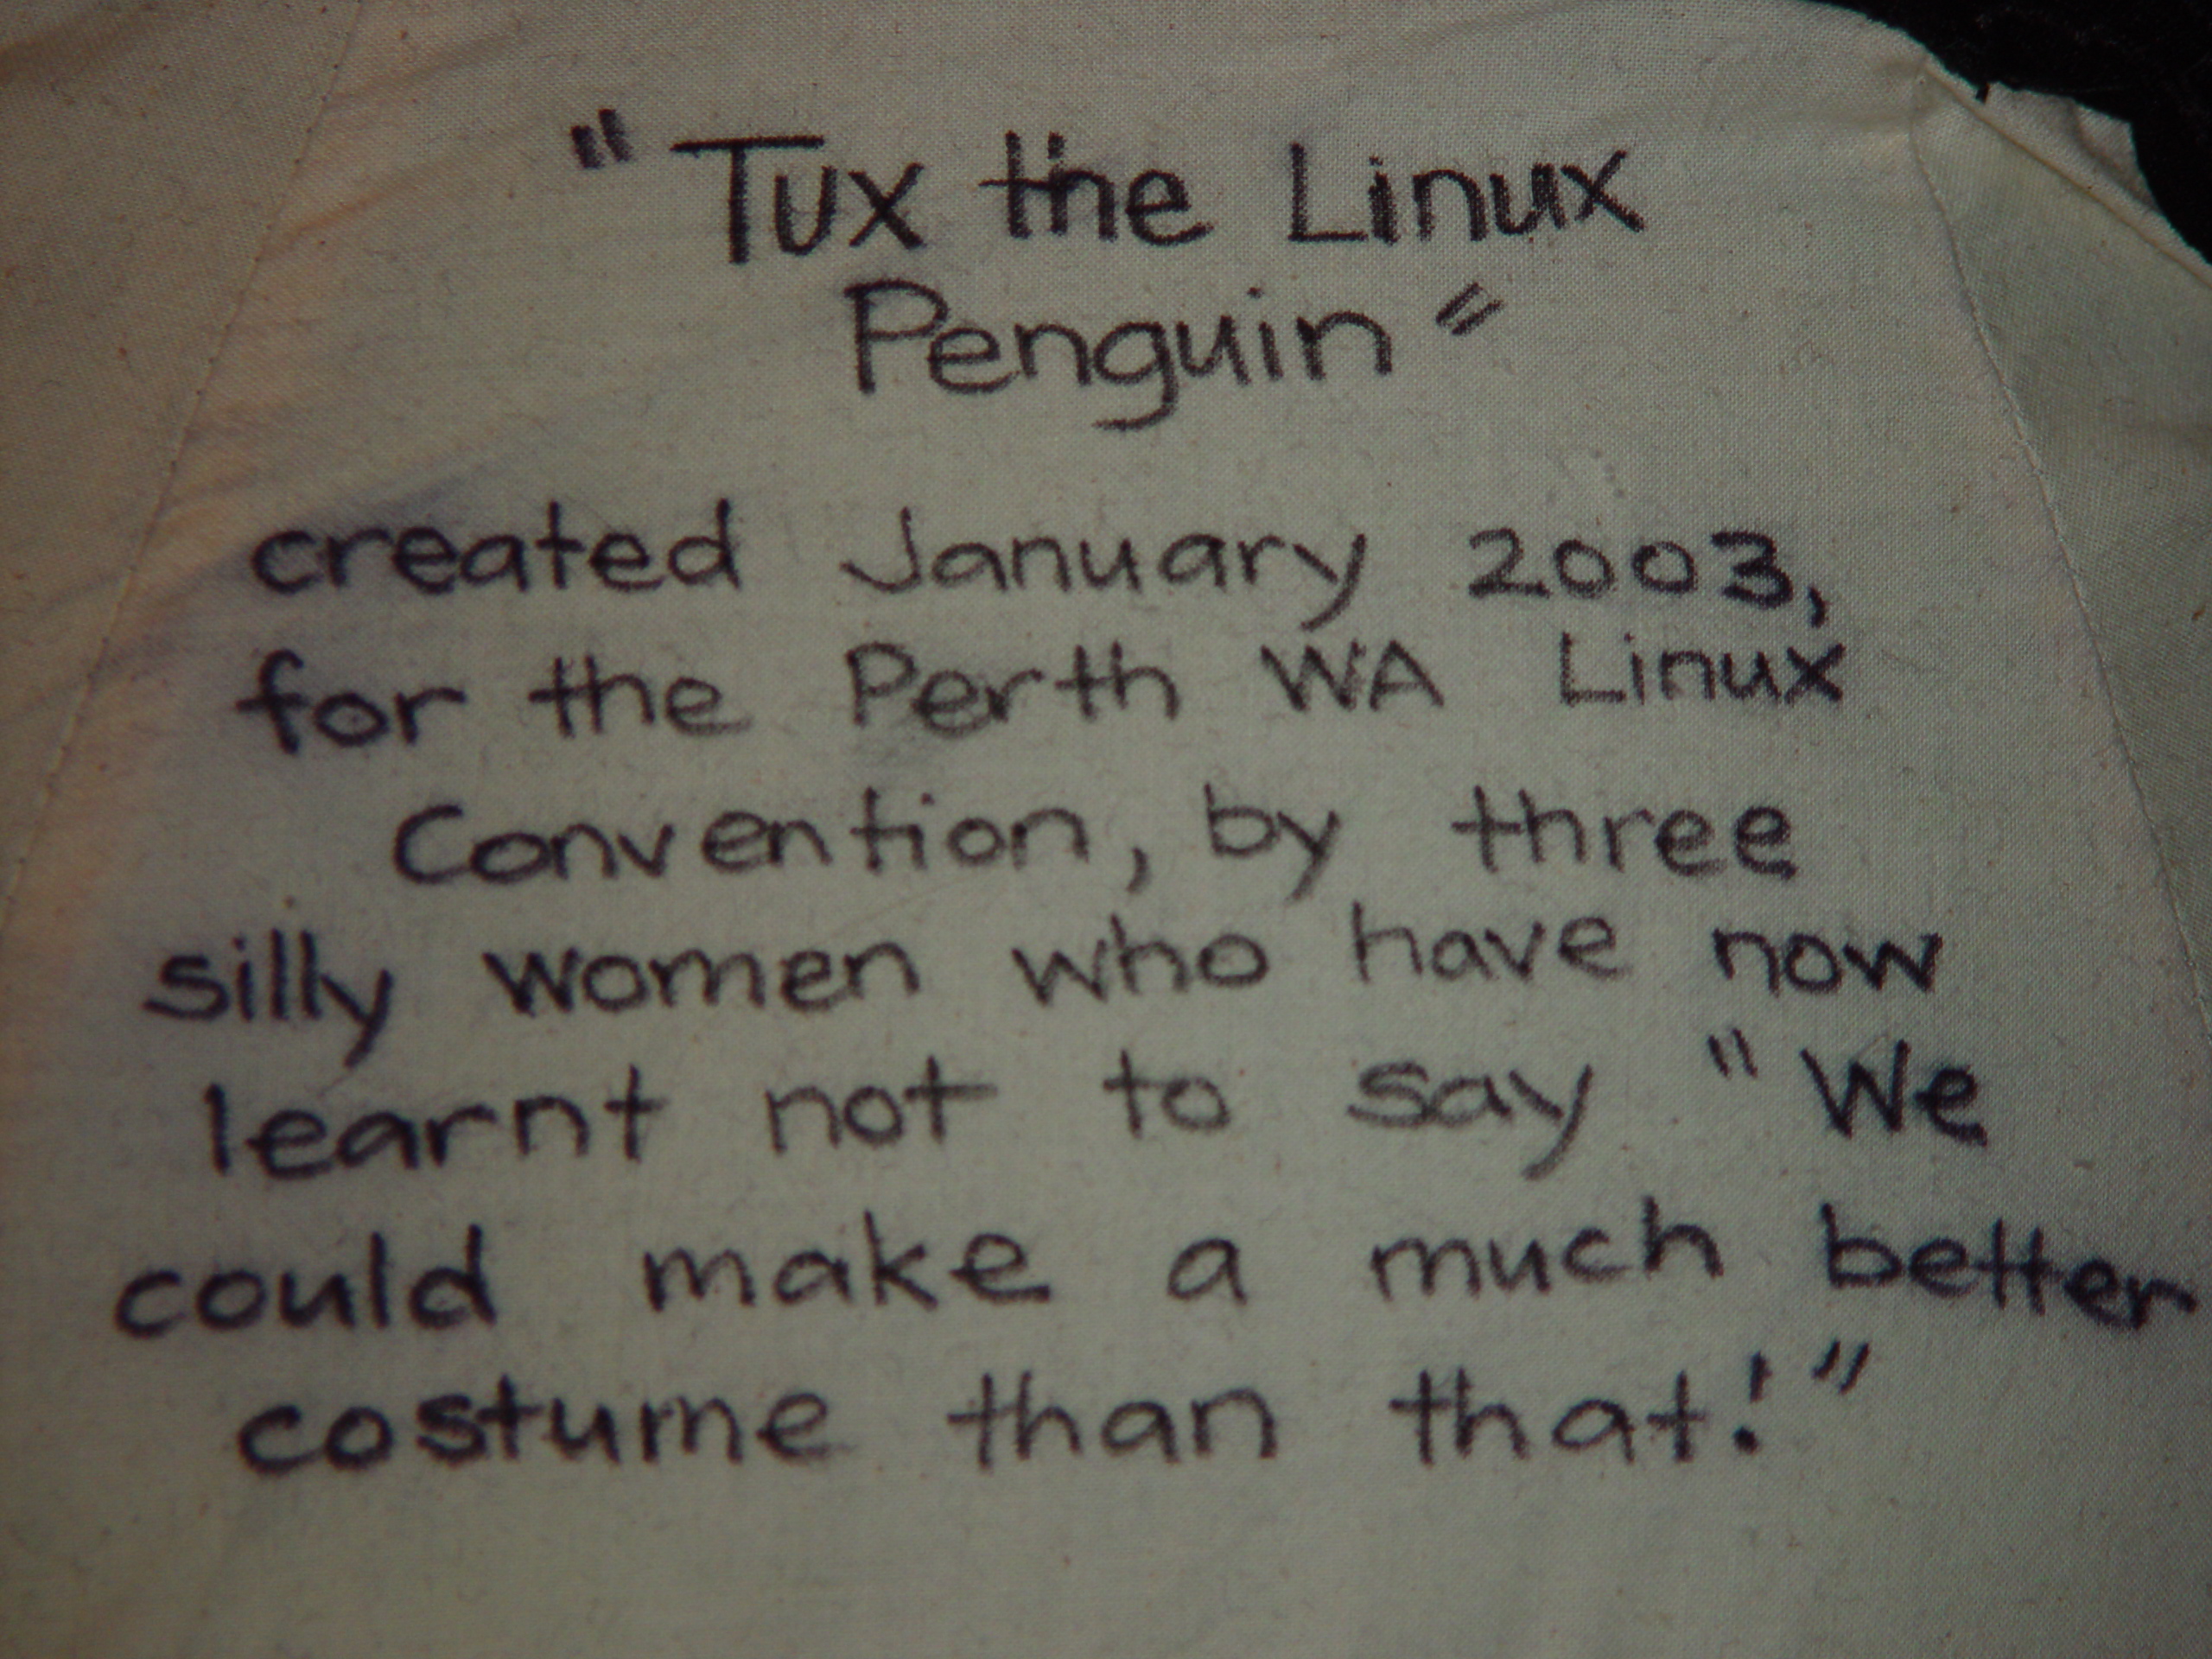 "Tux the Linux
Penguin"
created January 2003,
for the Perth WA Linux
Convention, by three
silly women who have now
learnt not to say "We
could make a much better
costume than that!"